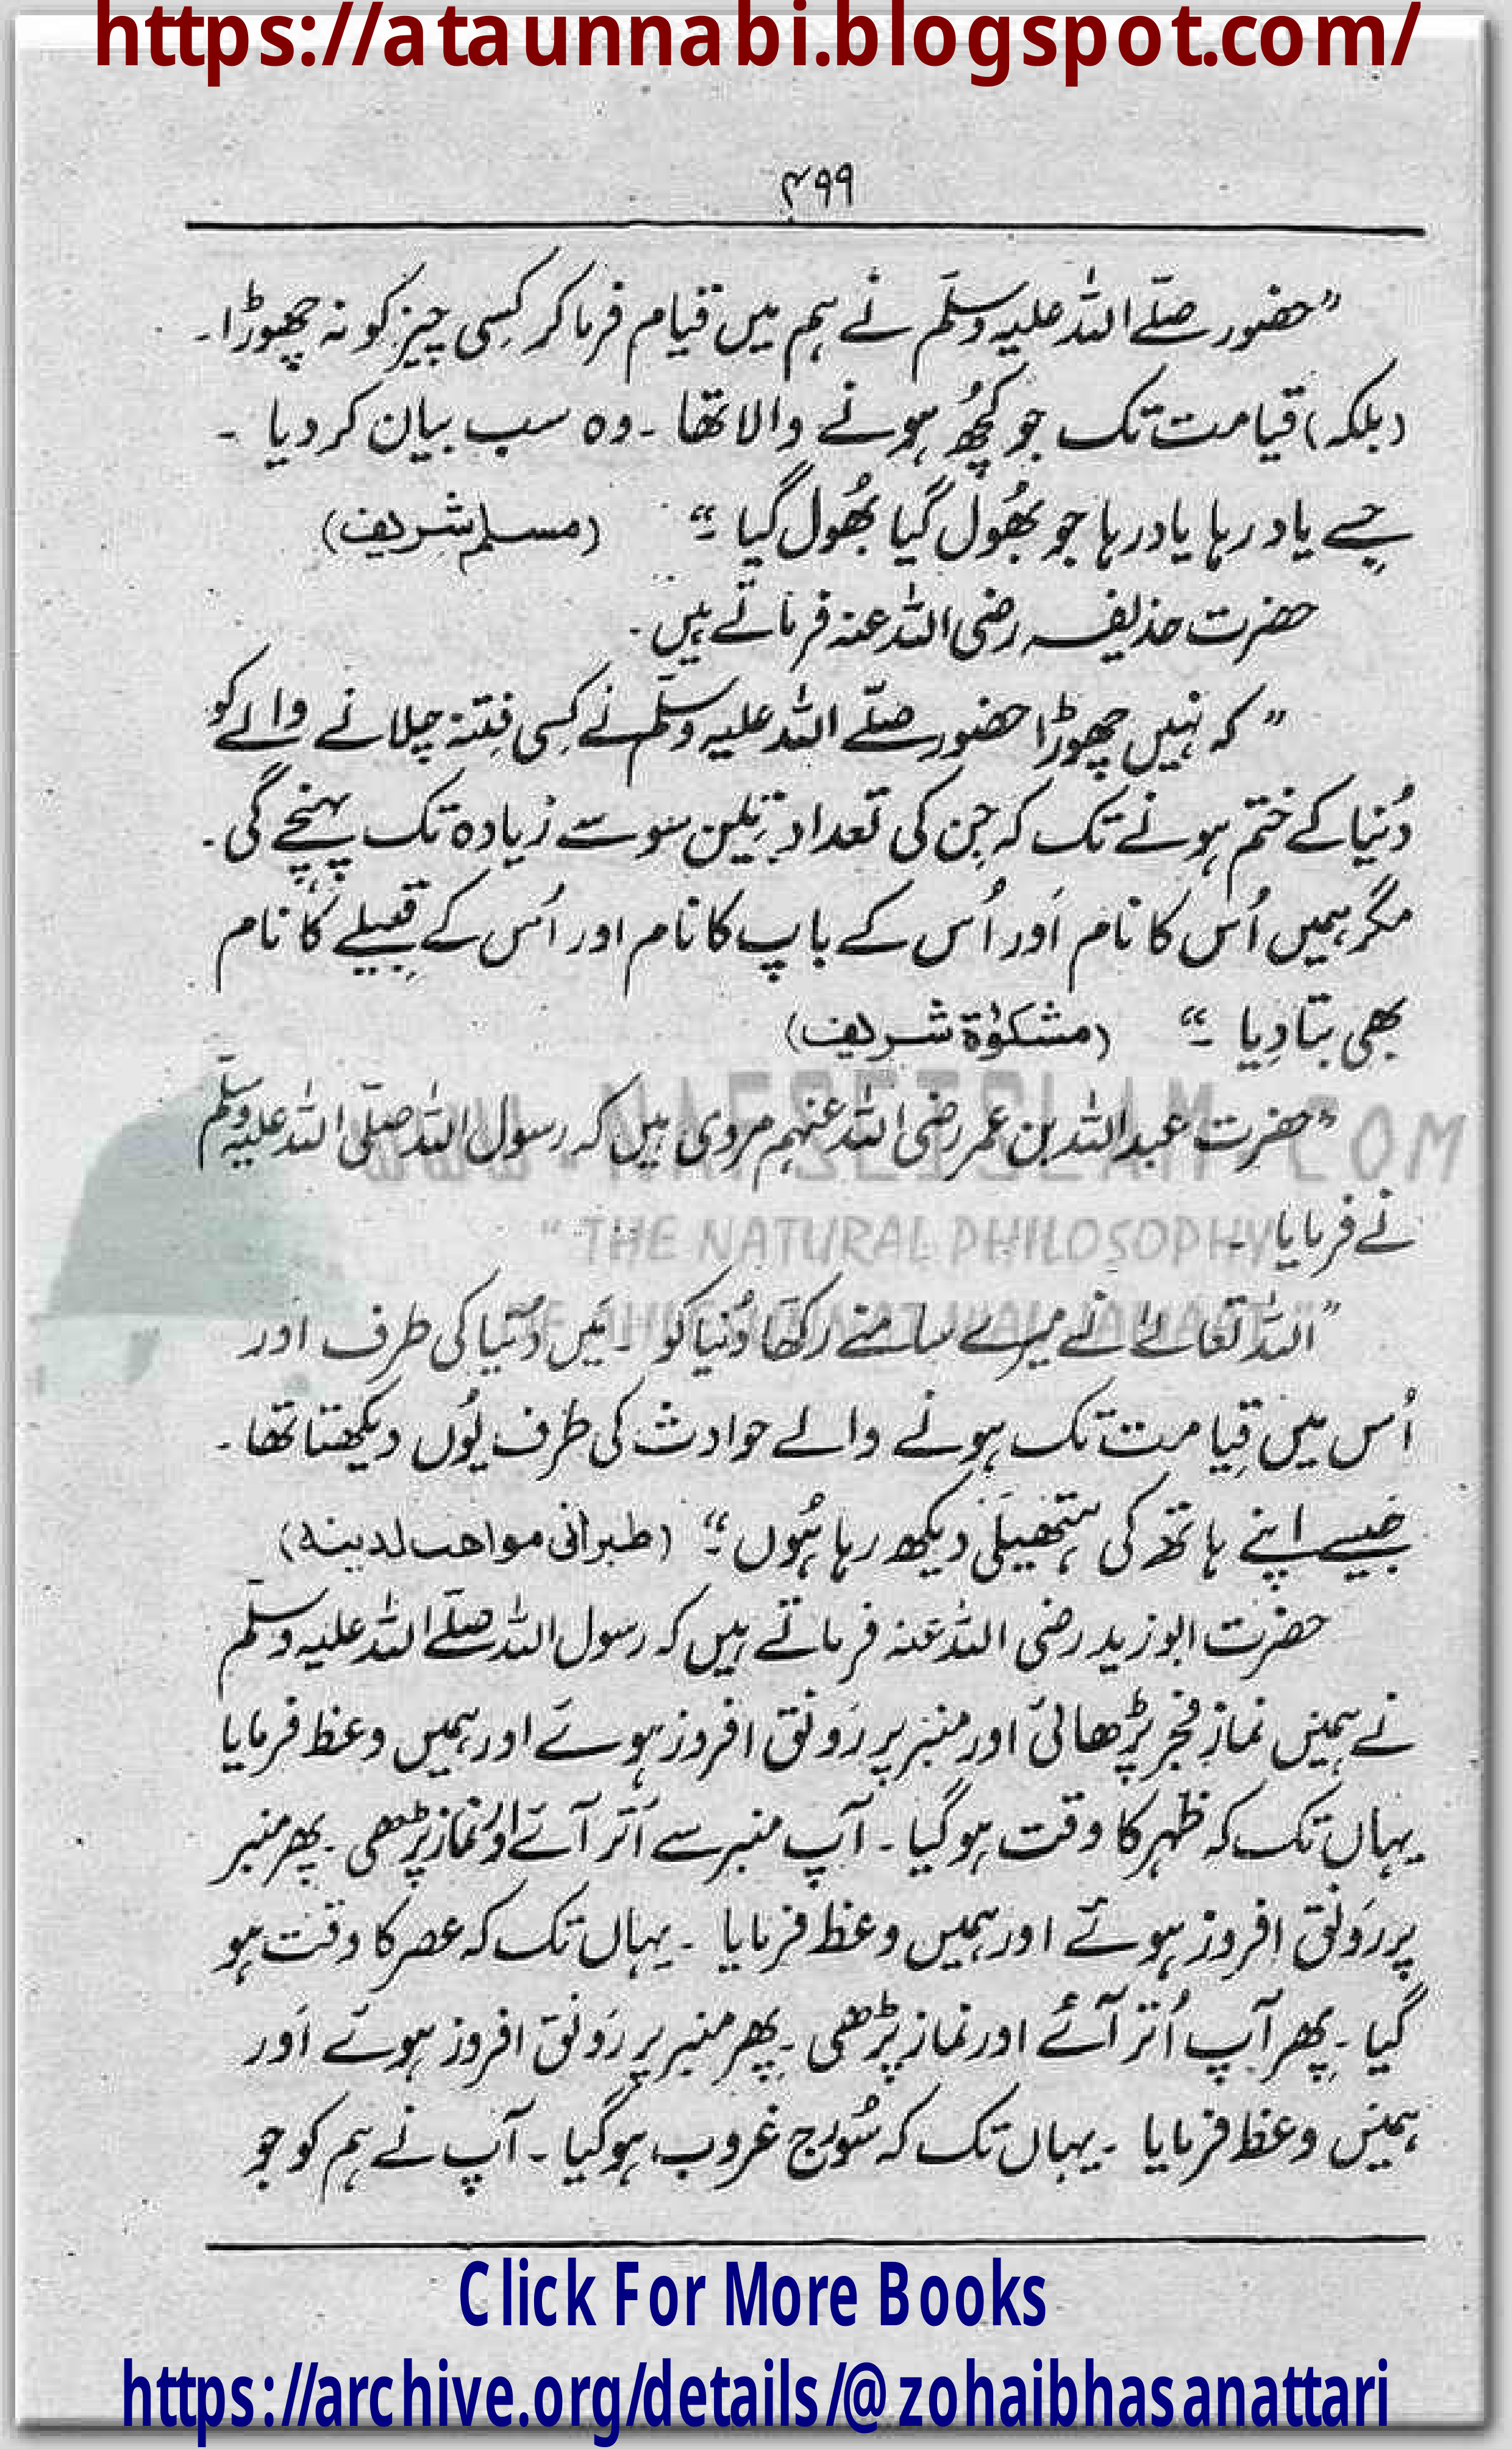 https://ataunnabi.blogspot.com/
۴۹۹
”حضور صلّے اللہ علیہ وسلّم نے ہم میں قیام فرما کر کسی چیز کو نہ چھوڑا۔
(بلکہ) قیامت تک جو کچھُ ہونے والا تھا ۔ وہ سب بیان کر دیا ۔
جسے یاد رہا یاد رہا جو بھُول گیا بھُول گیا ۔“ (مسلم شریف)
حضرت حذیفہ رضی اللہ عنہ فرماتے ہیں ۔
” کہ نہیں چھوڑا حضور صلّے اللہ علیہ وسلّم نے کسی فِتنہ چلانے والے کو
دُنیا کے ختم ہونے تک کہ جن کی تعداد تین سو سے زیادہ تک پہنچے گی ۔
مگر ہمیں اُس کا نام اَور اُس کے باپ کا نام اور اُس کے قبیلے کا نام
بھی بتا دِیا ۔“ (مشکوٰۃ شریف)
”حضرت عبداللہ بن عمر رضی اللہ عنہم مروی ہیں کہ رسول اللہ صلّی اللہ علیہ وسلّم
WWW.NAFSEISLAM.COM
نے فرمایا ۔
"THE NATURAL PHILOSOPHY
”اللہ تعالےٰ نے میرے سامنے رکھّا دُنیا کو ۔ مَیں دُنیا کی طرف اَور
OF AHLESUNNAT WAL JAMAAT"
اُس میں قیامت تک ہونے والے حوادث کی طرف یُوں دیکھتا تھا ۔
جَیسے اپنے ہاتھ کی ہتھیلَی دیکھ رہا ہُوں ۔“ (طبرانی مواھب لدینہ)
حضرت ابو زید رضی اللہ عنہ فرماتے ہیں کہ رسول اللہ صلّے اللہ علیہ وسلّم
نے ہمیں نمازِ فجر پڑھائی اور منبر پر رَونق افروز ہوئے اور ہمیں وعظ فرمایا
یہاں تک کہ ظہر کا وقت ہو گیا ۔ آپ منبر سے اُتر آئے اور نماز پڑھی ۔ پھر منبر
پر رَونق افروز ہوئے اور ہمیں وعظ فرمایا ۔ یہاں تک کہ عصر کا وقت ہو
گیا ۔ پھر آپ اُتر آئے اور نماز پڑھی ۔ پھر منبر پر رَونق افروز ہوئے اَور
ہمیں وعظ فرمایا ۔ یہاں تک کہ سُورج غروب ہو گیا ۔ آپ نے ہم کو جو
Click For More Books
https://archive.org/details/@zohaibhasanattari